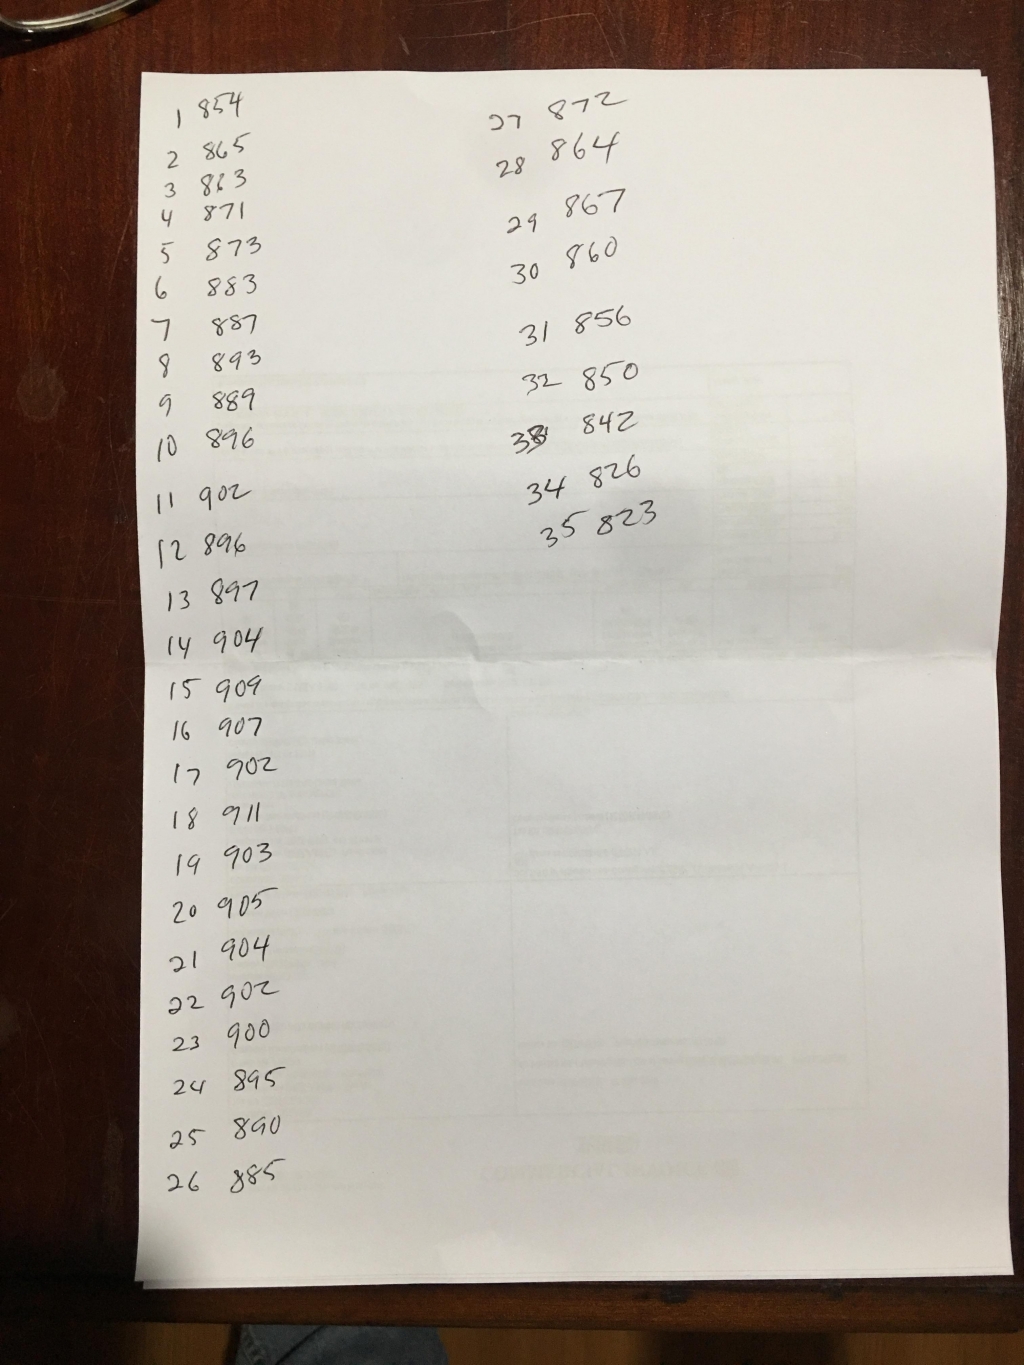 1 854
2 865
3 863
4 871
5 873
6 883
7 887
8 893
9 889
10 896
11 902
12 896
13 897
14 904
15 909
16 907
17 902
18 911
19 903
20 905
21 904
22 902
23 900
24 895
25 890
26 885
27 872
28 864
29 867
30 860
31 856
32 850
33 842
34 826
35 823